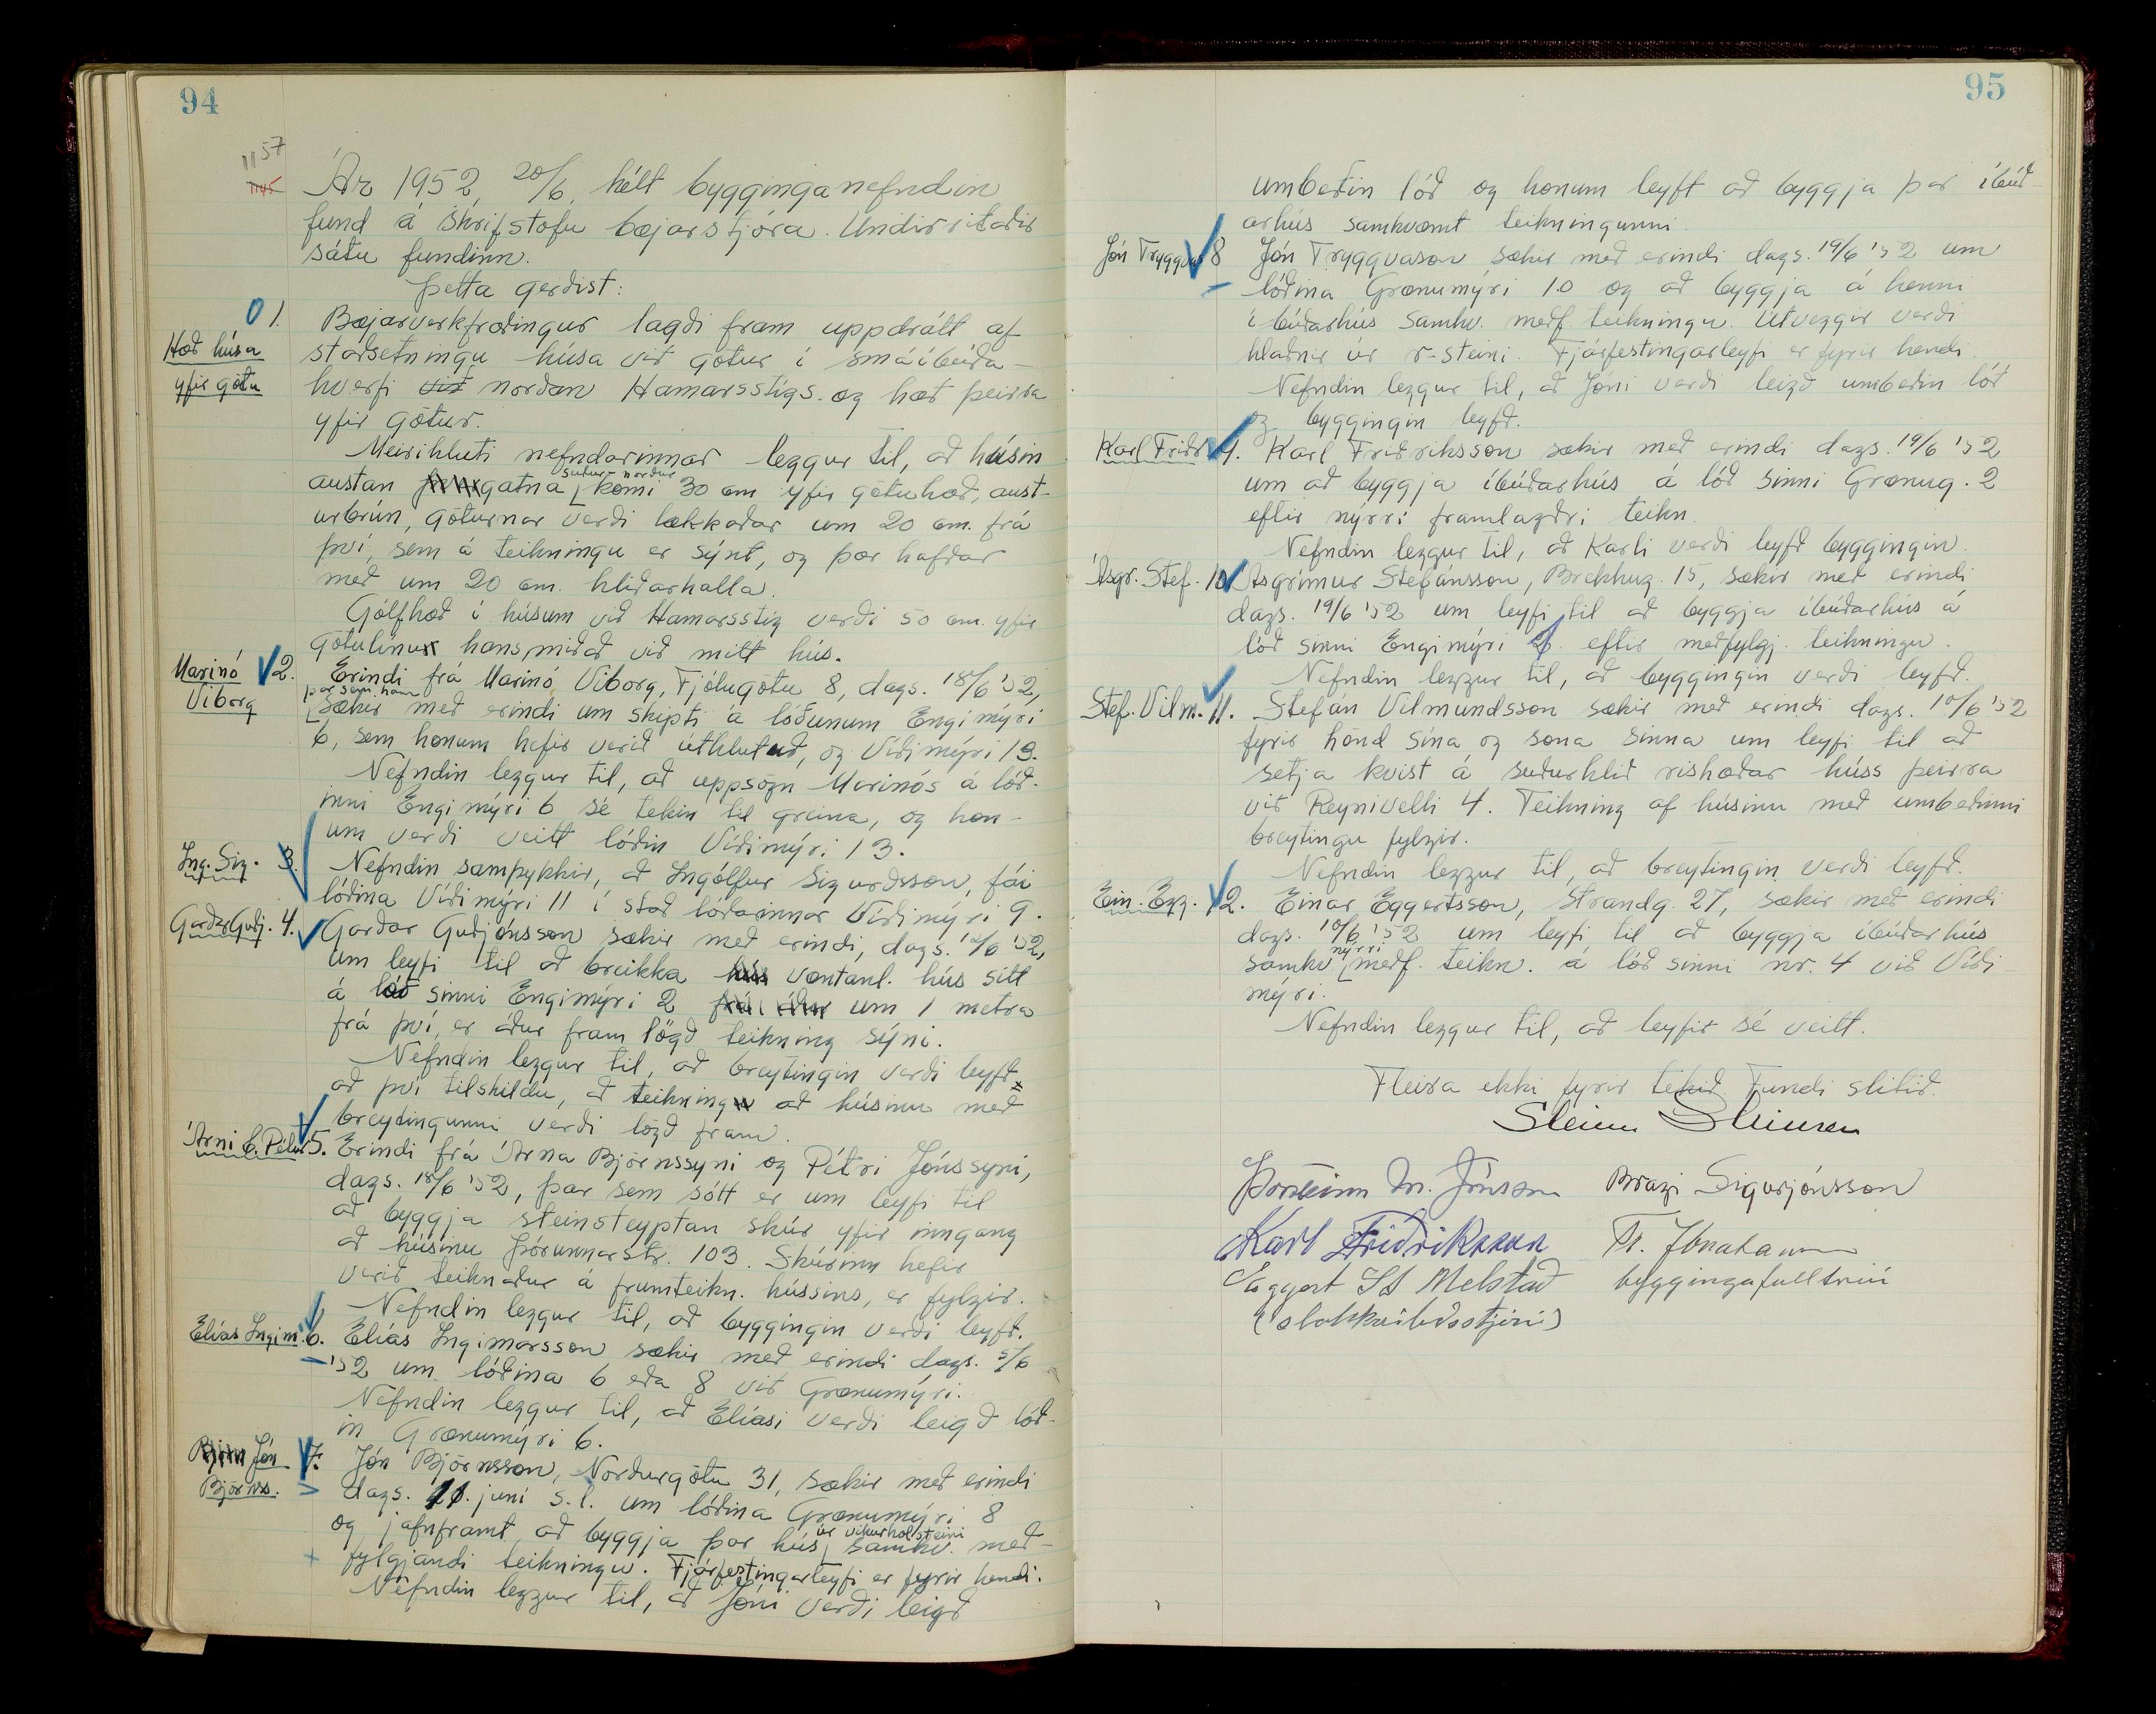 94
1157
1145
Ár 1952, 20/6, hélt bygginganefndin
fund á skrifstofu bæjarstjóra. Undirritaðir
sátu fundinn.
Þetta gerðist:
Hæð húsa
yfir götu
1. Bæjarverkfræðingur lagði fram uppdrátt af
staðsetningu húsa við götur í smáíbúða-
hverfi við norðan Hamarsstígs og hæð þeirra
yfir götur.
Meirihluti nefndarinnar leggur til, að húsin
austan gatna suður-norður komi 30 cm yfir götuhæð, aust-
urbrún, göturnar verði lækkaðar um 20 cm. frá
því, sem á teikningu er sýnt, og þær hafðar
með um 20 cm. hliðarhalla.
Gólfhæð í húsum við Hamarsstíg verði 50 cm. yfir
götulínu hans, miðað við mitt hús.
Marinó
Viborg
2. Erindi frá Marinó Viborg, Fjólugötu 8, dags. 18/6 '52,
þar sem hann
sækir með erindi um skipti á lóðunum Engimýri
6, sem honum hefir verið úthlutað, og Víðimýri 13.
Nefndin leggur til, að uppsögn Marinós á lóð-
inni Engimýri 6 sé tekin til greina, og hon-
um verði veitt lóðin Víðimýri 13.
Ing. Sig. 3. Nefndin samþykkir, að Ingólfur Sigurðsson, fái
lóðina Víðimýri 11 í stað lóðarinnar Víðimýri 9.
Garðar Guðj. 4. Garðar Guðjónsson sækir með erindi, dags. 12/6 '52,
um leyfi til að breikka hús væntanl. hús sitt
á lóð sinni Engimýri 2 frá áður um 1 metra
frá því, er áður fram lögð teikning sýni.
Nefndin leggur til, að breytingin verði leyfð
að því tilskildu, að teikning að húsinu með
breytingunni verði lögð fram.
Árni B. Pétur 5. Erindi frá Árna Björnssyni og Pétri Jónssyni,
dags. 18/6 '52, þar sem sótt er um leyfi til
að byggja steinsteyptan skúr yfir inngang
að húsinu Þórunnarstr. 103. Skúrinn hefir
verið teiknaður á frumteikn. hússins, er fylgir.
Nefndin leggur til, að byggingin verði leyfð.
Elías Ingim. 6. Elías Ingimarsson sækir með erindi dags. 5/6
'52 um lóðina 6 eða 8 við Grænumýri.
Nefndin leggur til, að Elíasi verði leigð lóð-
in Grænumýri 6.
Björn Jón
Björns.
7. Jón Björnsson, Norðurgötu 31, sækir með erindi
dags. 11. júní s.l. um lóðina Grænumýri 8
og jafnframt að byggja þar hús úr vikurholsteini samkv. með-
fylgjandi teikningu. Fjárfestingarleyfi er fyrir hendi.
Nefndin leggur til, að Jóni verði leigð
95
umbeðin lóð og honum leyft að byggja þar íbúð-
arhús samkvæmt teikningunni.
Jón Tryggvas 8 Jón Tryggvason sækir með erindi dags. 19/6 '52 um
lóðina Grænumýri 10 og að byggja á henni
íbúðarhús samkv. meðf. teikningu. Útveggir verði
hlaðnir úr r-steini. Fjárfestingarleyfi er fyrir hendi.
Nefndin leggur til, að Jóni verði leigð umbeðin lóð
og byggingin leyfð.
Karl Friðr. 9. Karl Friðriksson sækir með erindi dags. 19/6 '52
um að byggja íbúðarhús á lóð sinni Grænug. 2
eftir nýrri framlagðri teikn.
Nefndin leggur til, að Karli verði leyfð byggingin.
Ásgr. Stef. 10 Ásgrímur Stefánsson, Brekkug. 15, sækir með erindi
dags. 19/6 '52 um leyfi til að byggja íbúðarhús á
lóð sinni Engimýri eftir meðfylgj. teikningu.
Nefndin leggur til, að byggingin verði leyfð.
Stef. Vilm. 11. Stefán Vilmundsson sækir með erindi dags. 10/6 '52
fyrir hönd sína og sona sinna um leyfi til að
setja kvist á suðurhlið rishæðar húss þeirra
við Reynivelli 4. Teikning af húsinu með umbeðinni
breytingu fylgir.
Nefndin leggur til, að breytingin verði leyfð.
Ein. Egg. 12. Einar Eggertsson, Strandg. 27, sækir með erindi
dags. 10/6 '52 um leyfi til að byggja íbúðarhús
samkv. nýrri meðf. teikn. á lóð sinni nr. 4 við Víði-
mýri.
Nefndin leggur til, að leyfið sé veitt.
Fleira ekki fyrir tekið. Fundi slitið.
Steinn Steinsen
Þorsteinn M. Jónsson Bragi Sigurjónsson
Karl Friðriksson
Eggert St Melstað byggingafulltrúi
(slökkviliðsstjóri)